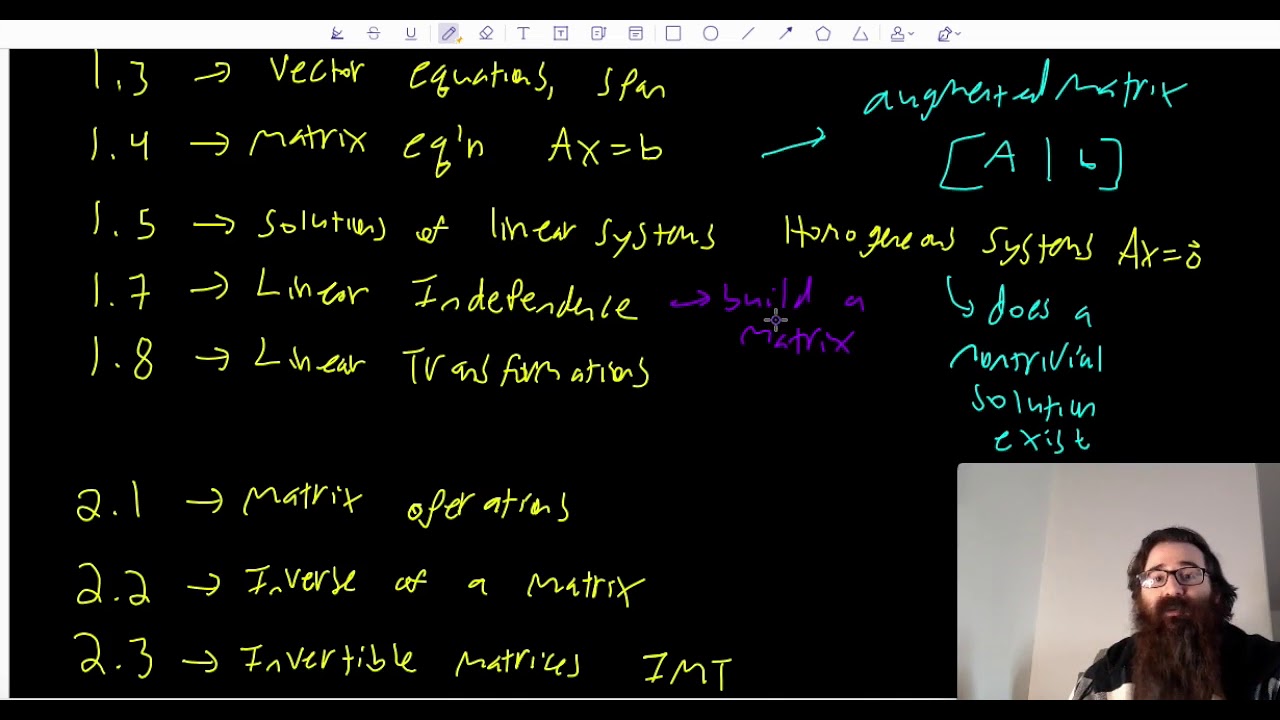 1.3 → Vector equations, span
1.4 → Matrix eq'n Ax=b →
augmented matrix
[A | b]
1.5 → Solutions of linear systems Homogeneous systems Ax=0⃗
1.7 → Linear Independence → build a
matrix
↳ does a
nontrivial
solution
exist
1.8 → Linear Transformations
2.1 → Matrix operations
2.2 → Inverse of a matrix
2.3 → Invertible matrices IMT